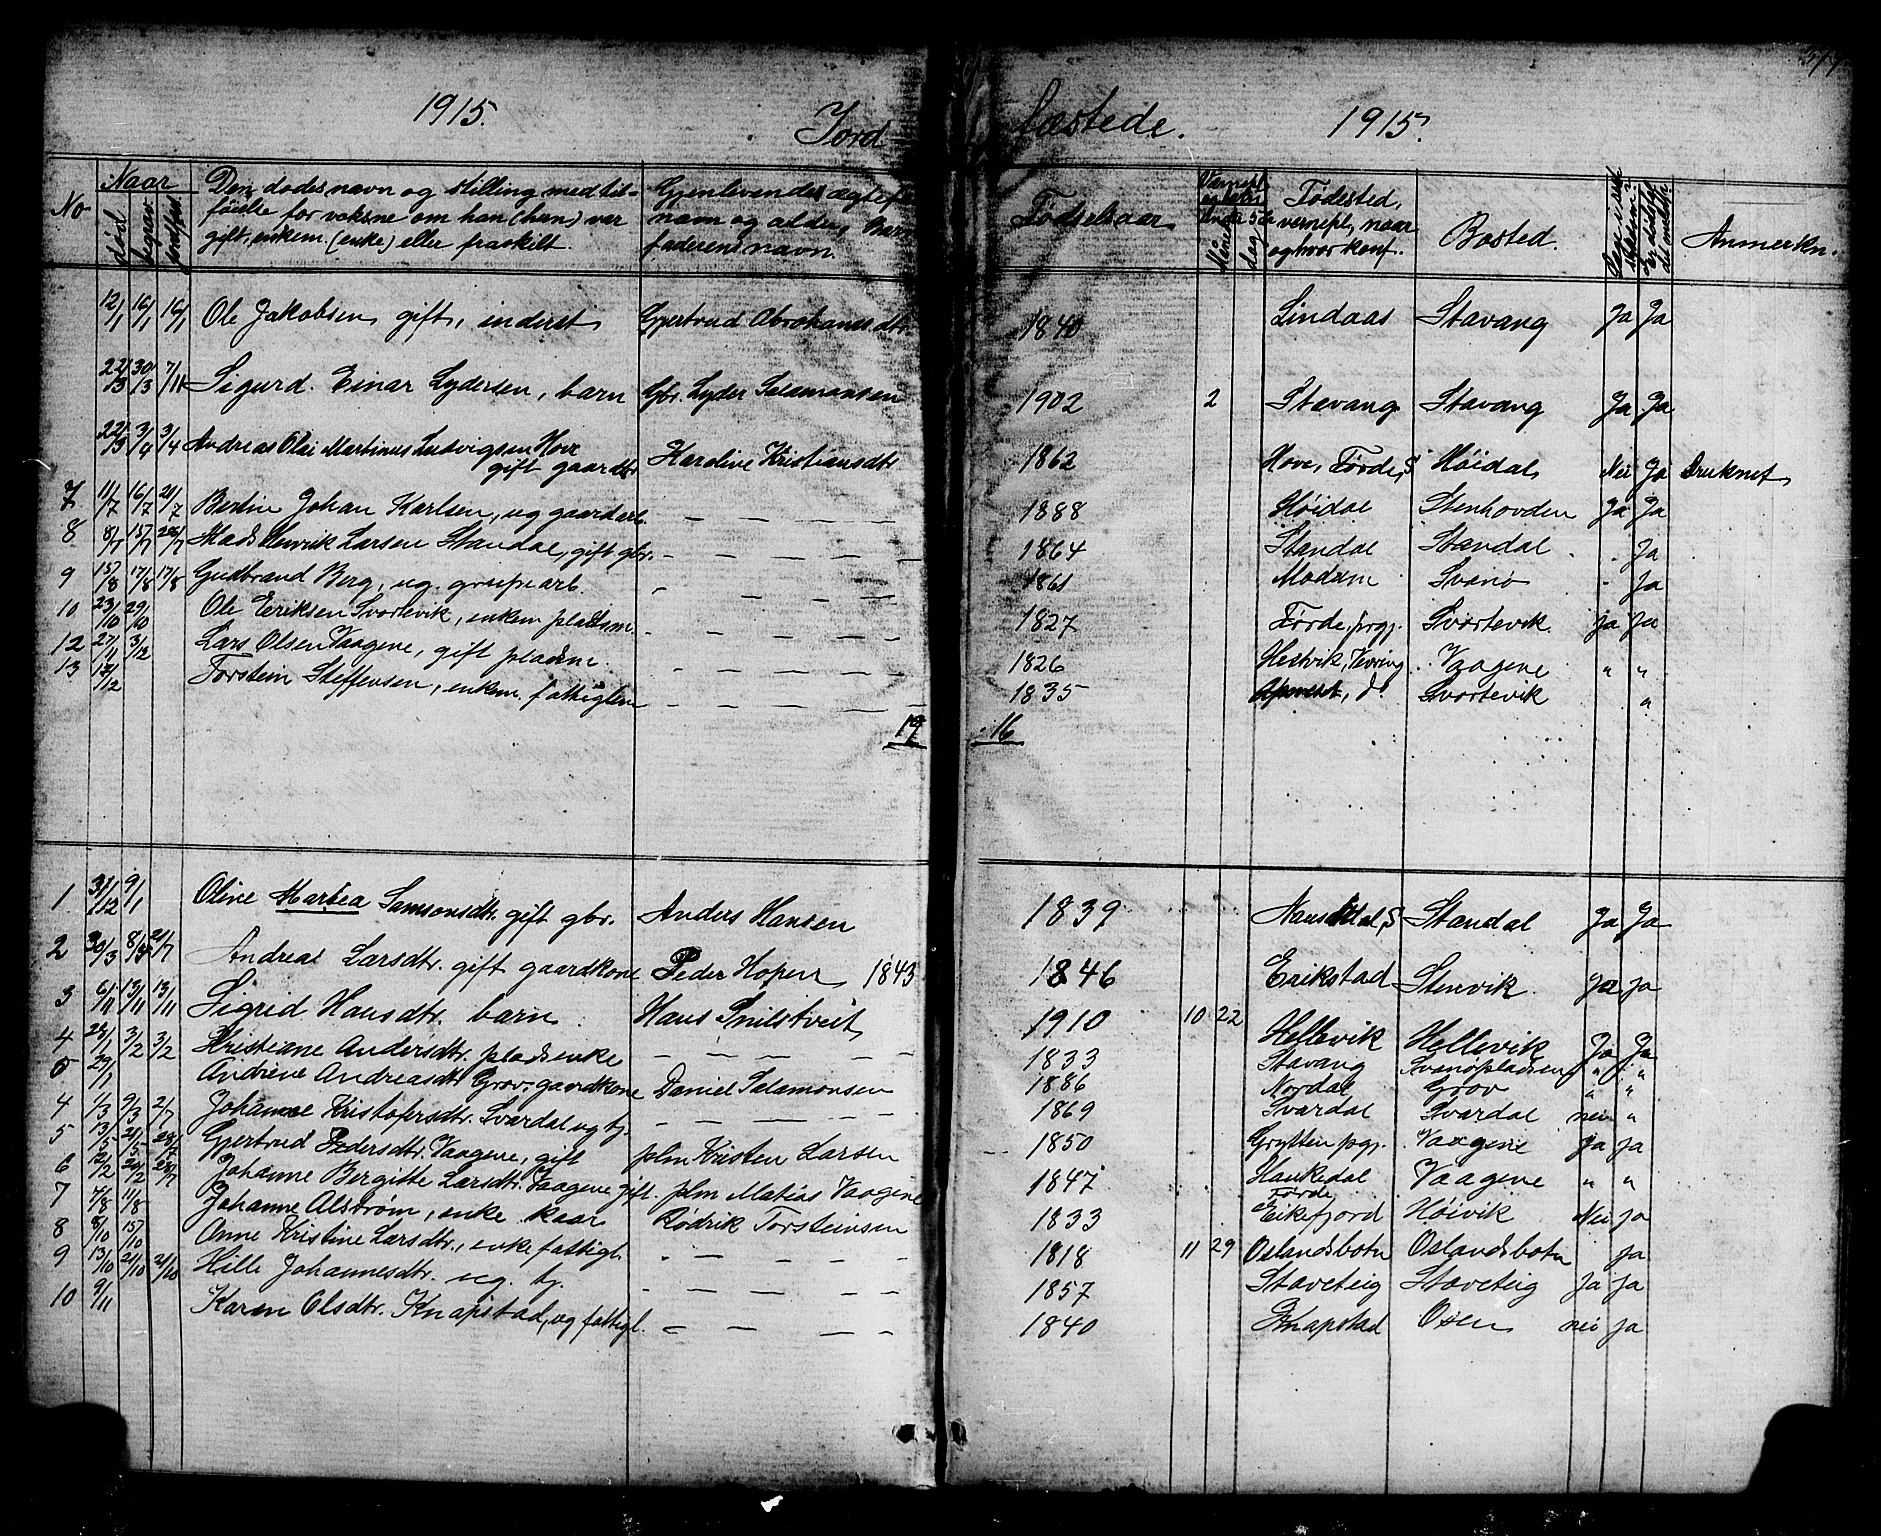 1915. Jord fæstede. 1915.
No Naar Den dødes navn og stilling med til- Gjenlevendes ægtef. Fødselsaar Fødested, Bosted. Anmerkn.
død begrav. jordfæst. føielse for voksne om han (hun) var navn og alder, Barn Maaned dag vernepl., naar
gift, enkem. (enke) eller fraskilt. faderens navn. og hvor konf.
12/1 16/1 16/1 Ole Jakobsen gift, inderst Gjertrud Abrahamsdtr. 1840 Lindaas Stavang Ja Ja
22/3 30/3 7/11 Sigurd Einar Lydersen, barn Gbr. Lyder Salamonsen 1902 2 Stavang Stavang Ja Ja
22/3 3/4 3/4 Andreas Olai Martinus Ludvigsen Hove
gift gaardbr. Karoline Kristiansdtr 1862 Hove, Førde, S Høidal Nei Ja Druknet
7 11/7 16/7 21/7 Bertin Johan Karlsen, ug gaardarb. — — — — 1888 Høidal Stenhovden Ja Ja
8 8/7 15/7 Mads Henrik Larsen Standal, gift gbr. — — — — 1864 Standal Standal . Ja
9 15/8 17/8 17/8 Gudbrand Berg, ug. grubearb. — — — — 1861 Modum Svanø " Ja
10 23/10 29/10 Ole Eriksen Svortevik, enkem pladsm. — — — — 1827 Førde, prgj. Svortevik ja ja
12 27/11 3/12 Lars Olsen Vaagene, gift pladsm. — — — — 1826 Hestvik, Vevring Vaagene " "
13 Torstein Steffensen, enkem. fattiglem — — — — 1835 d° Svortevik "
16
1 31/12 9/1 Oline Martea Samsonsdtr. gift gbr. Anders Hansen 1839 Naustdal, S Standal Ja Ja
2 30/3 21/7 Andrea Larsdtr. gift gaardkone Peder Hopen 1843 1846 Erikstad Stenvik Ja ja
3 6/11 13/11 13/11 Sigrid Hansdtr. barn Hans Smilstveit 1910 10 22 Hellevik Hellevik Ja Ja
4 3/2 3/2 Kristiane Andersdtr. pladsenke — — — — 1833 Stavang Svanøpladsen " "
5 29/1 Andrine Andreasdtr Grov, gaardkone Daniel Salamonsen 1886 Nordal Grov " "
4 1/3 9/3 2/7 Johanne Kristofersdtr. Svardal ug tj. — — — — 1869 Svardal Svardal nei "
5 13/5 21/5 Gjertrud Pedersdtr. Vaagene, gift plm Kristen Larsen 1850 Grytten pgj. Vaagene Ja ja
6 Johanne Bergitte Larsdtr. Vaagene gift. plm Matias Vaagene 1847 Haukedal Førde Vaagene " "
7 7/8 11/8 Johanne Alstrøm, enke kaar Rødrik Torsteinsen 1833 Eikefjord Høivik Nei ja
8 8/10 15/10 Anne Kristine Larsdtr., enke fattigl. — — — — 1818 11 29 Oslandsbotn Oslandsbotn ja
9 13/10 21/10 21/10 Hille Johannesdtr. ug. tj. — — — — 1857 Staveteig Staveteig ja ja
10 9/11 Karen Olsdtr. Knapstad, ug fattigl. — — — — 1840 Knapstad Osen nei ja